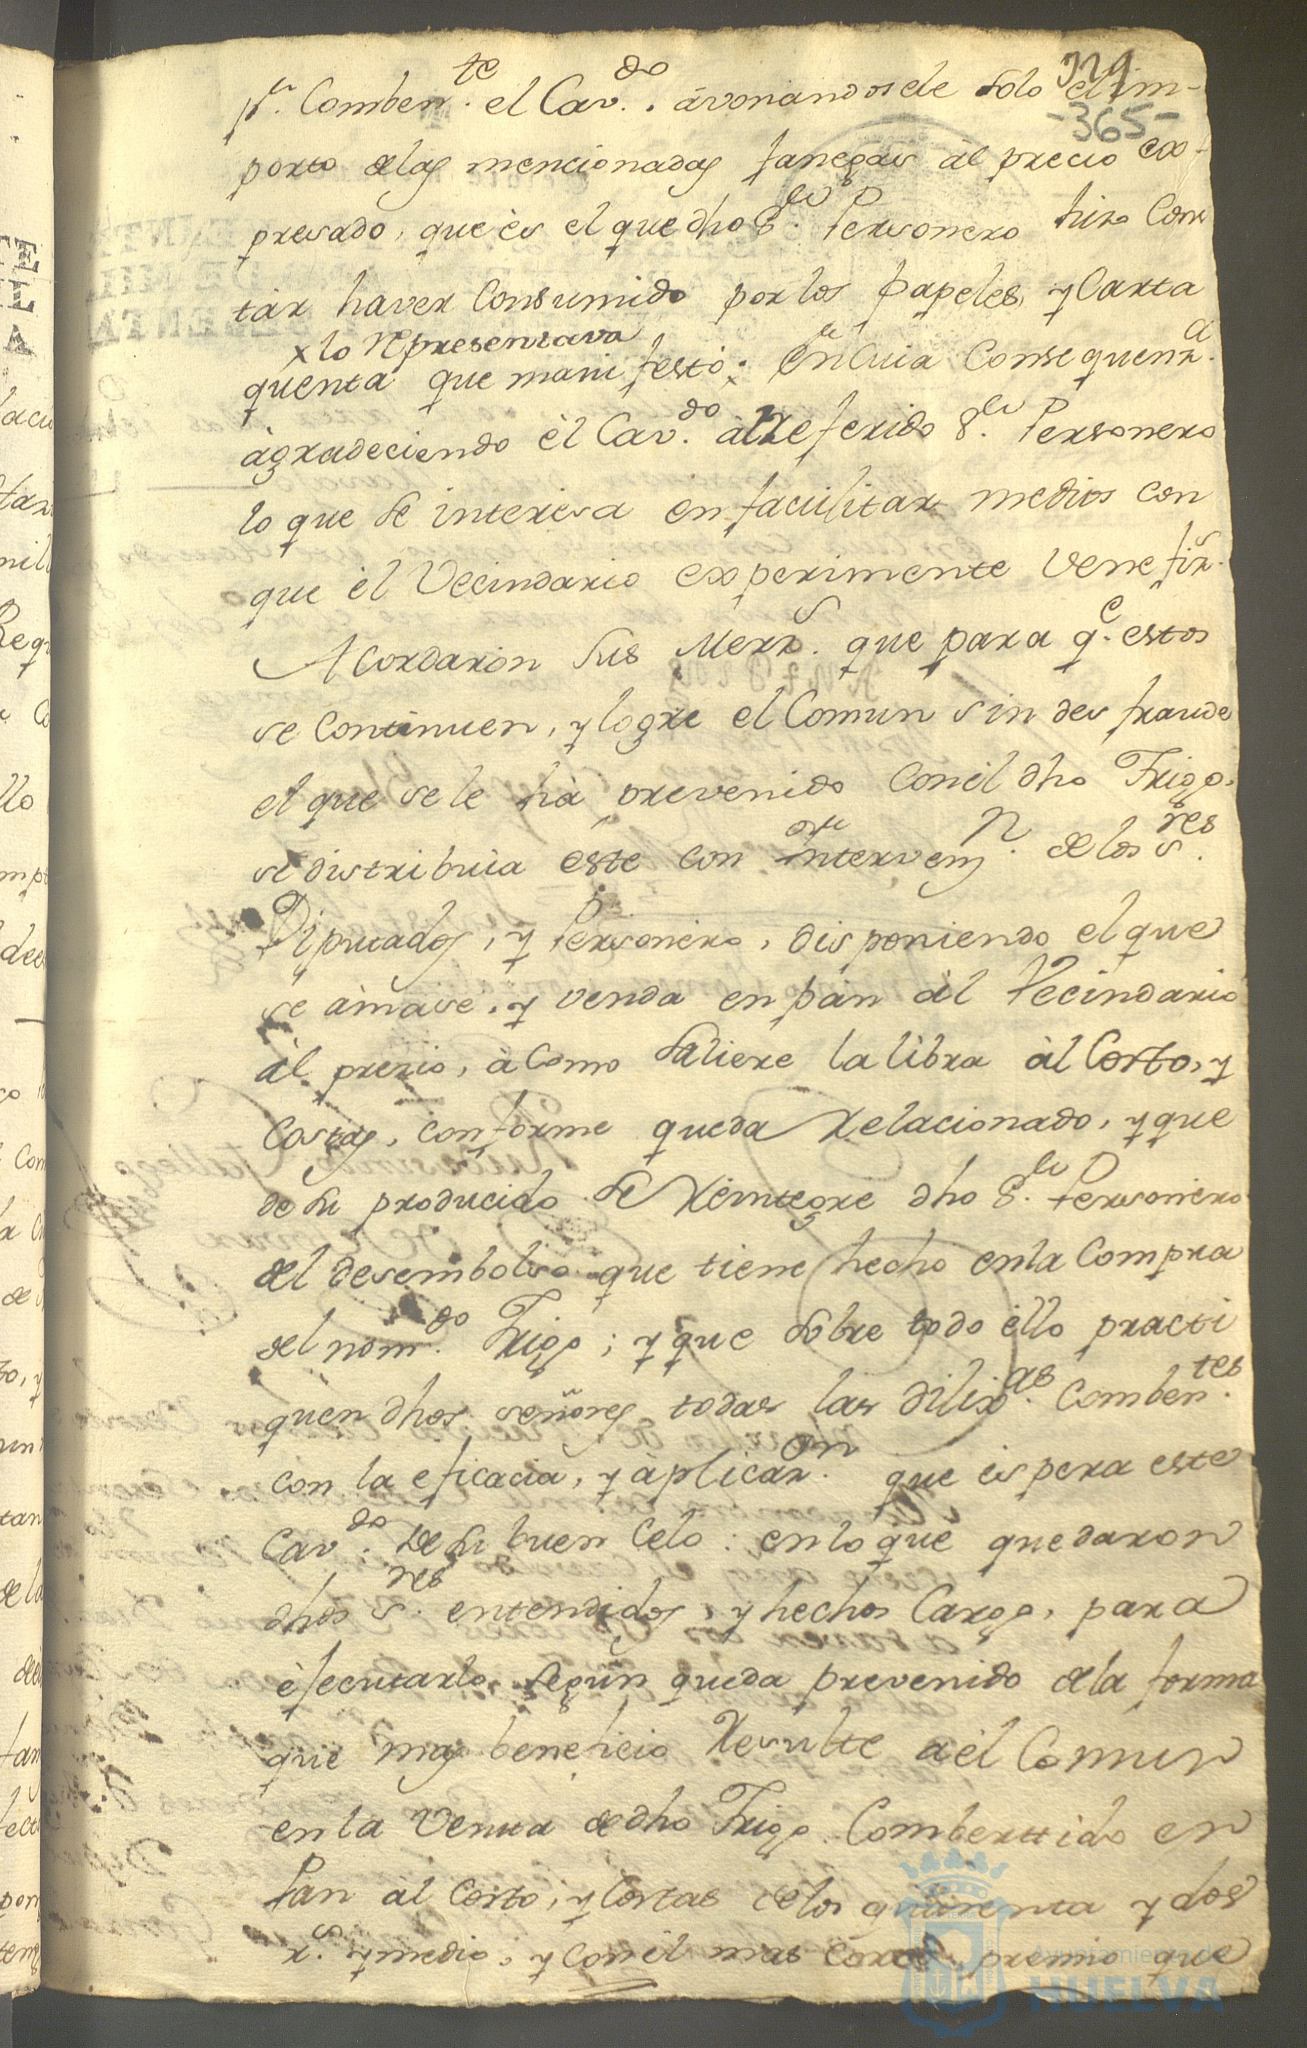 329
-365-
pr. Comben.te el Cav.do avonandosele solo el im-
porte de las mencionadas fanegas àl precio ex-
presado, que ès el que dho S.or Personero hizo Cons
tar haver Consumido por los papeles, y Carta
x lo representava
quenta que manifestò: en cuia Consequenz.a
àgradeciendo èl Cav.do àl Referido S.or Personero
lo que se interesa en facilitar medios con
que èl Vecindario experimente Venefiz.s
Acordaron sus Merz.s que para q.e estos
se Continuen, y logre el Comun sin desfraude
el que se le hà prevenido Con èl dho Trigo,
se distribuia èste con interven.n de los S.res
Diputados, y Personero, disponiendo el que
se àmase, y venda en pan àl Vecindario
àl prezio, à Como saliere la libra àl Costo, y
Costas, conforme queda Relacionado, y que
de su producido se Reintegre dho S.or Personero
del desembolso que tiene hecho en la Compra
del nom.do Trigo; y que sobre todo ello practi
quen dhos señores todas las dilix.as Comben.tes
con la eficacia, y àplicaz.on que èspera este
Cav.do de su buen Celo: en lo que quedaron
dhos S.res entendidos, y hechos Cargo, para
èjecutarlo, segun queda prevenido de la forma
que mas beneficio Resulte a èl Comun
en la Venta de dho Trigo Combertido en
Pan àl Costo, y Costas de los quarenta y dos
r.s y medio, y con èl mas corto premio que
Ayuntamiento de
HUELVA